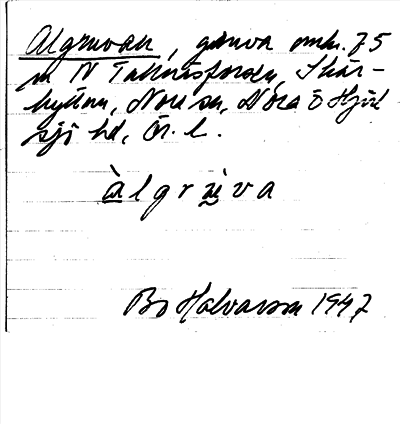 Algruvan, gruva omkr. 75
m N Taknäsforsen, Skär-
hyttan, Nora sn, Nora o Hjul
sjö hd, Ör. l.
àlgrùva
Bo Halvarson 1947